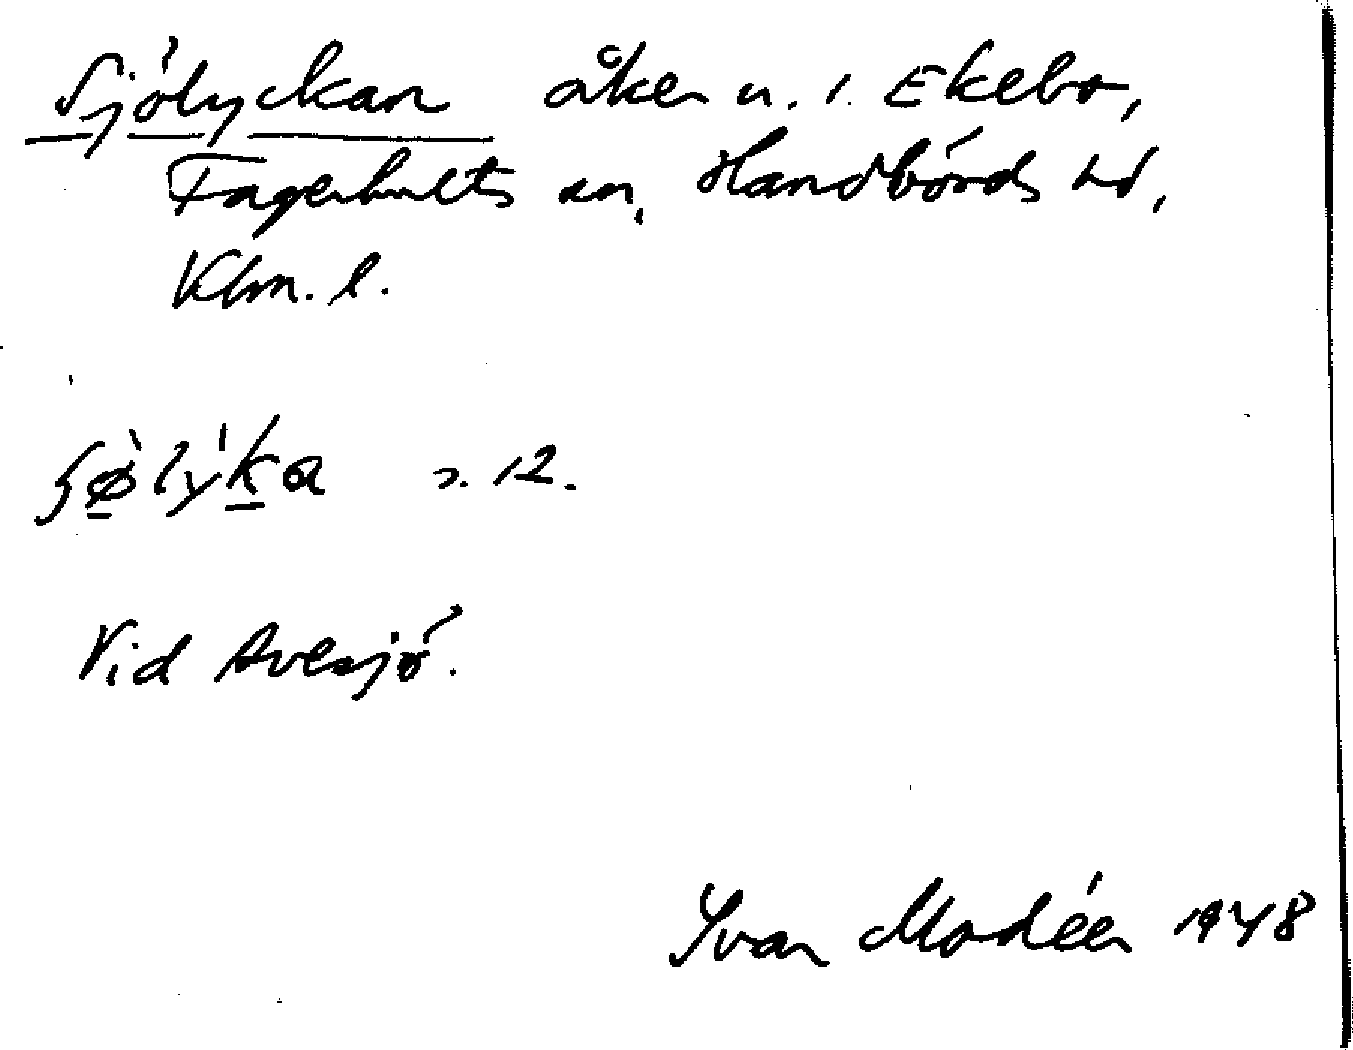 Sjölyckan åker u. i. Ekebo,
Fagerhults sn, Handbörds hd,
Klm. l.
ʃø̀lýka s. 12.
Vid Avesjö.
Ivar Modéer 1948